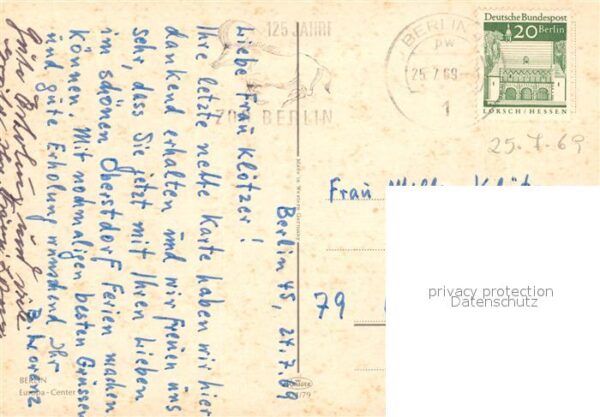 125 JAHRE
ZOO BERLIN
BERLIN
pw
25.7.69
1
Deutsche Bundespost
20 Berlin
LORSCH / HESSEN
25.7.69
Berlin 45, 24.7.69
Liebe Frau Klötzer!
Ihre letzte nette Karte haben wir hier
dankend erhalten und wir freuen uns
sehr, dass Sie jetzt mit Ihren Lieben
im schönen Oberstdorf Ferien machen
können. Mit nochmaligen besten Grüssen
und gute Erholung wünschend Ihr
B. Lorenz
Gute Erholung und
Frau
79
privacy protection
Datenschutz
Made in Western Germany
BERLIN
Europa-Center